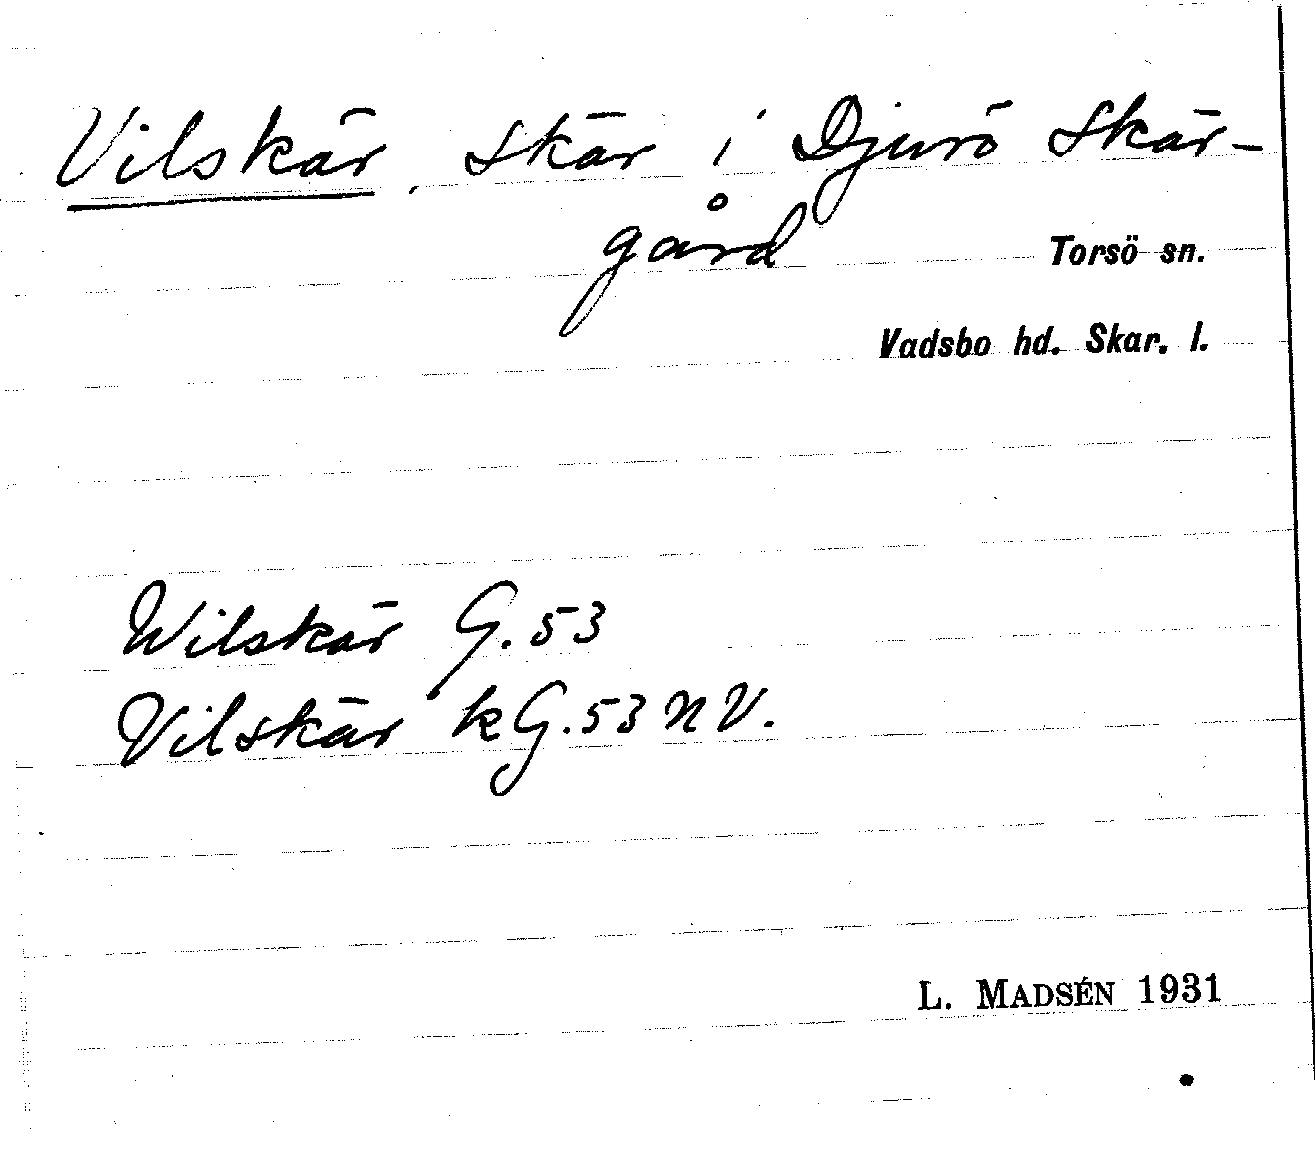 Vilskär, skär i Djurö skär-
gård
Torsö sn.
Vadsbo hd. Skar. l.
Wilskär G. 53
Vilskär kG. 53 NV.
L. MADSÉN 1931